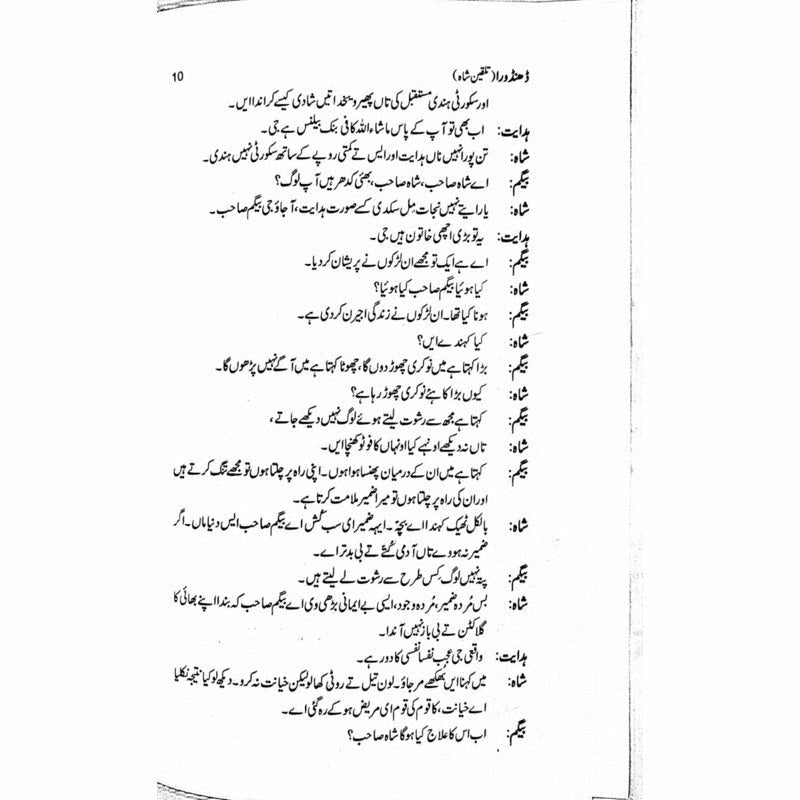 ڈھنڈورا (تلقین شاہ) 10
اور سکورٹی ہندی مستقبل کی تاں پھیر وبخدا تیں شادی کیسے کراندا ایں۔
ہدایت: اب بھی تو آپ کے پاس ماشاء اللہ کافی بنک بیلنس ہے جی۔
شاہ: تن پورا نہیں ناں ہدایت اور ایس تے کمتی روپے کے ساتھ سکورٹی نہیں ہندی۔
بیگم: اے شاہ صاحب، شاہ صاحب، بھئی کدھر ہیں آپ لوگ؟
شاہ: یار ایتے نہیں نجات مِل سکدی کسے صورت ہدایت، آجاؤ جی بیگم صاحب۔
ہدایت: یہ تو بڑی اچھی خاتون ہیں جی۔
بیگم: اے ہے ایک تو مجھے ان لڑکوں نے پریشان کر دیا۔
شاہ: کیا ہوئیا بیگم صاحب کیا ہوئیا؟
بیگم: ہونا کیا تھا۔ ان لڑکوں نے زندگی اجیرن کر دی ہے۔
شاہ: کیا کہندے ایں؟
بیگم: بڑا کہتا ہے میں نوکری چھوڑ دوں گا، چھوٹا کہتا ہے میں آگے نہیں پڑھوں گا۔
شاہ: کیوں بڑا کاہئے نوکری چھوڑ رہا ہے؟
بیگم: کہتا ہے مجھ سے رشوت لیتے ہوئے لوگ نہیں دیکھے جاتے،
شاہ: تاں نہ دیکھے اونہے کیا اونہاں کا فوٹو کھنچا ایں۔
بیگم: کہتا ہے میں ان کے درمیان پھنسا ہوا ہوں۔ اپنی راہ پر چلتا ہوں تو مجھے تنگ کرتے ہیں
اور ان کی راہ پر چلتا ہوں تو میرا ضمیر ملامت کرتا ہے۔
شاہ: بالکل ٹھیک کہندا اے بچہ۔ ایہہ ضمیر ای سب کُش اے بیگم صاحب ایس دنیا ماں۔ اگر
ضمیر نہ ہووے تاں آدمی کُتے تے بی بدتر اے۔
بیگم: پتہ نہیں لوگ کِس طرح سے رشوت لے لیتے ہیں۔
شاہ: بس مُردہ ضمیر، مُردہ وجود، ایسی بے ایمانی بڑھی وی اے بیگم صاحب کہ بندا اپنے بھائی کا
گلا کٹن تے بی باز نہیں آندا۔
ہدایت: واقعی جی عجب نفسا نفسی کا دور ہے۔
شاہ: میں کہنا ایں بُھکھے مرجاؤ۔ لون تیل تے روٹی کھا لو لیکن خیانت نہ کرو۔ دیکھ لو کیا نتیجہ نکلیا
اے خیانت، کا قوم کی قوم ای مریض ہو کے رہ گئی اے۔
بیگم: اب اس کا علاج کیا ہوگا شاہ صاحب؟